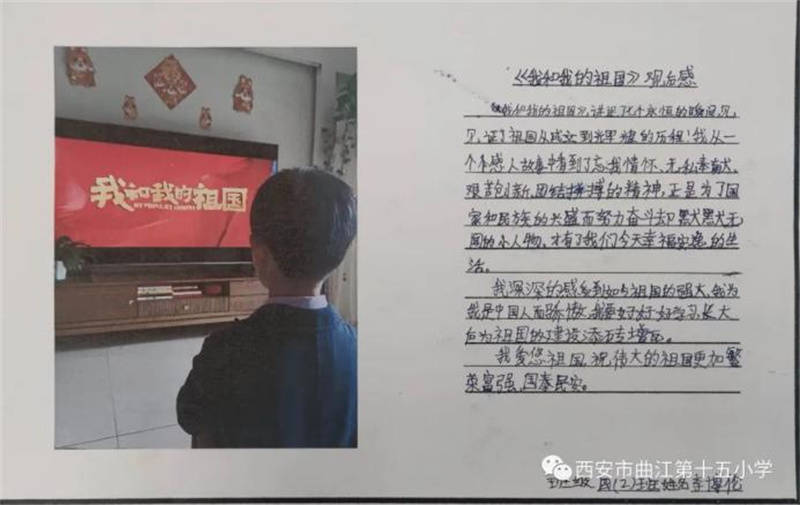 我和我的祖国
MY PEOPLE MY COUNTRY
《我和我的祖国》观后感
《我和我的祖国》讲述了七个永恒的瞬间,见
证了祖国从成立到光辉的历程!我从一
个个感人故事中看到了忘我情怀、无私奉献、
艰苦创新,团结拼搏的精神,正是为了国
家和民族的兴盛而努力奋斗却默默无
闻的小人物,才有了我们今天幸福安逸的生
活。
我深深的感受到如今祖国的强大,我为
我是中国人而骄傲,我要好好学习,长大
后为祖国的建设添砖增瓦。
我爱您祖国,祝伟大的祖国更加繁
荣富强、国泰民安。
西安市曲江第十五小学
班级 四(2)班 姓名 李博伦